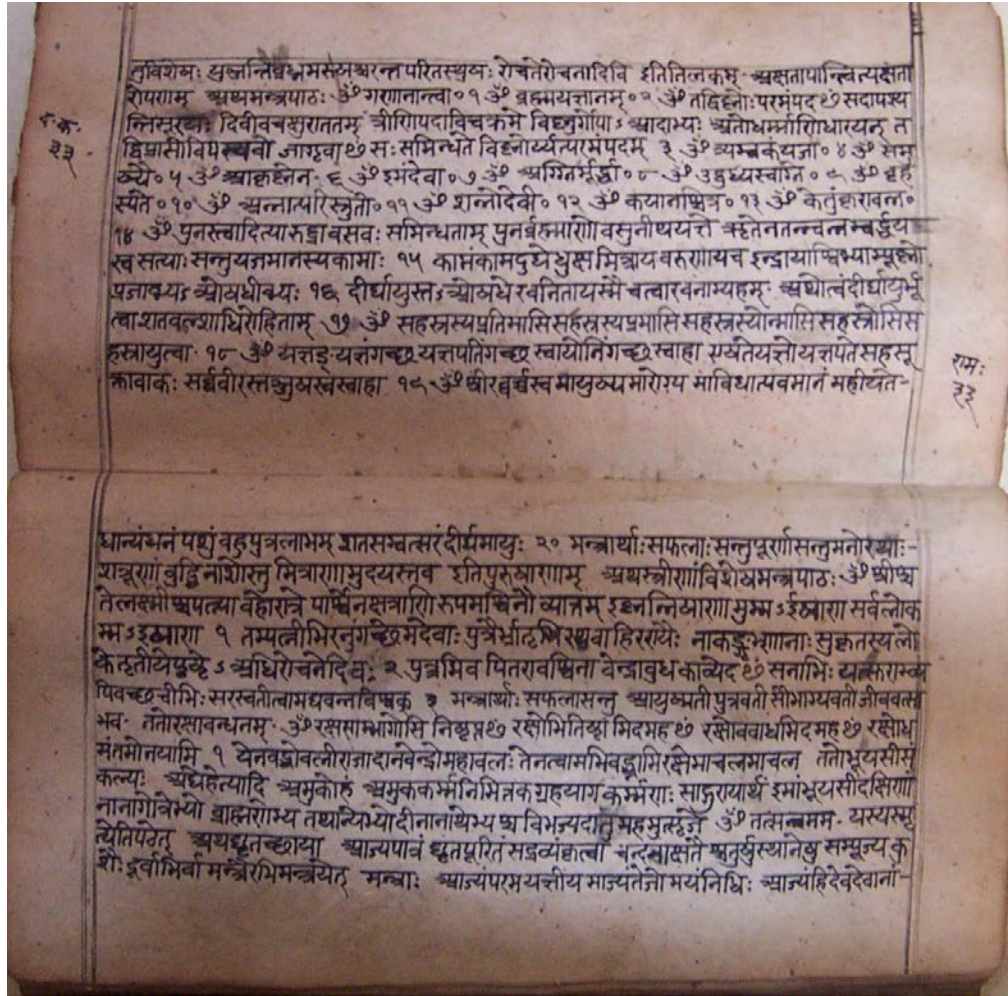 तुविशेषः युञ्जन्तिब्रध्नमरुषञ्चरन्तपरितस्थुषः रोचतेरोचनादिवि इतितिलकम् अक्षतापान्त्वित्यक्षता
रोपणम् अथमन्त्रपाठः ॐ गणानान्त्वा॰ १ ॐ ब्रह्मयज्ञानम्॰ २ ॐ तद्विष्णोःपरमंपदꣳसदापश्य
न्तिसूरयः दिवीवचक्षुराततम् त्रीणिपदाविचक्रमे विष्णुर्गोपाऽअदाभ्यः अतोधर्माणिधारयन् त
द्विप्रासोविपन्यवो जागृवाꣳसः समिन्धते विष्णोर्य्यत्परमंपदम् ३ ॐ त्र्यम्बकंयजा॰ ४ ॐ सम
ख्ये॰ ५ ॐ आकृष्णेन॰ ६ ॐ इमंदेवा॰ ७ ॐ अग्निर्मूर्द्धा॰ ८ ॐ उद्बुध्यस्वाग्ने॰ ९ ॐ बृह
स्पते॰ १० ॐ अन्नात्परिस्रुतो॰ ११ ॐ शन्नोदेवी॰ १२ ॐ कयानश्चित्र॰ १३ ॐ केतुंकृण्वन्न॰
१४ ॐ पुनस्त्वादित्यारुद्रावसवः समिन्धताम् पुनर्ब्रह्माणोवसुनीथयज्ञैः घृतेनतन्वन्तम्वर्द्धय
स्व सत्याः सन्तुयजमानस्यकामाः १५ कामंकामदुघेधुक्ष्व मित्रायवरुणायच इन्द्रायाश्विभ्याम्पूष्णे
प्रजाभ्यऽओषधीभ्यः १६ दीर्घायुस्तऽओषधे खनितायस्मै चत्वाखनाम्यहम् अथोत्वंदीर्घायुर्भू
त्वाशतवल्शाविरोहिताम् १७ ॐ सहस्रस्यप्रतिमासिसहस्रस्यप्रमासि सहस्रस्योन्मासिसहस्रोसिस
हस्रायुत्वा १८ ॐ यज्ञङ्यज्ञंगच्छ यज्ञपतिंगच्छ स्वायोनिंगच्छस्वाहा एषतेयज्ञोयज्ञपतेसहसू
क्तावाकः सर्ववीरस्तञ्जुषस्वस्वाहा १९ ॐ श्रीर्वर्च्चस्वमायुष्यमारोग्य माविधात्पवमानं महीयते
रामः
३३
३३
धान्यंधनं पशुं वहुपुत्रलाभम् शतसम्वत्सरंदीर्घमायुः २० मन्त्रार्थाःसफलाः सन्तुपूर्णासन्तुमनोरथाः
शत्रूणांबुद्धिनाशोस्तु मित्राणामुदयस्तव इतिपुरुषाणाम् अथस्त्रीणांविशेषमन्त्रपाठः ॐ श्रीश्च
तेलक्ष्मीश्चपत्न्या वहोरात्रे पार्श्वेनक्षत्राणि रूपमश्विनौ व्यात्तम् इष्णन्निषाणा मुम्मऽइषाण सर्वलोक
म्मऽइषाण १ तम्पत्नीभिरनुगच्छेमदेवाः पुत्रैर्भ्रातृभिरुतवाहिरण्यैः नाकङ्गृभ्णानाः सुकृतस्यलो
केतृतीयेपृष्ठेऽअधिरोचनेदिवः २ पुत्रमिव पितरावश्विना वेन्द्रावथुःकाव्यैर्दꣳसनाभिः यत्सुराम्व्य
पिवःशचीभिः सरस्वतीत्वामघवन्नभिष्णक् ३ मन्त्रार्थाः सफलासन्तु आयुष्मती पुत्रवती सौभाग्यवती जीववत्सा
भव ततोरक्षावन्धनम् ॐ रक्षसाम्भागोसि निरस्तꣳरक्षोभितिष्ठामिदमहꣳ रक्षोववाधमिदमहꣳ रक्षोध
मंतमोनयामि १ येनवद्धोवलीराजादानवेन्द्रोमहावलः तेनत्वामभिवद्धामिरक्षेमाचलमाचल ततोभूयसीसं
कल्पः अद्येहेत्यादि अमुकोहं अमुककर्मनिमित्तकग्रहयाग कर्मणः साङ्गतार्थं इमांभूयसींदक्षिणां
नानागोत्रेभ्यो ब्राह्मणेभ्य तथान्येभ्योदीनानाथेभ्यश्च विभज्यदातुमहमुत्सृजे ॐ तत्सन्नमम यस्यस्मृ
त्येतिपठेत् अथघृतच्छाया आज्यपात्रं घृतपूरितं सद्रव्यंकृत्वा चन्दनाक्षतैः चतुर्षुस्थानेषु सम्पूज्य कु
शैः दूर्वाभिर्वा मन्त्रैरभिमन्त्रयेत् मन्त्राः आज्यंपरमयज्ञीय माज्यंतेजो मयंनिधिः आज्यंहिदेवदेवानां